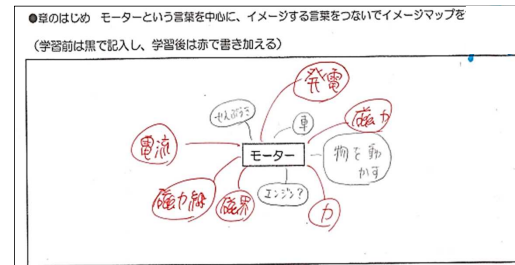 ●章のはじめ モーターという言葉を中心に、イメージする言葉をつないでイメージマップを
(学習前は黒で記入し、学習後は赤で書き加える)
発電
せんぷうき
車
磁力
電流
モーター
物を動
かす
磁力線
磁界
エンジン?
力